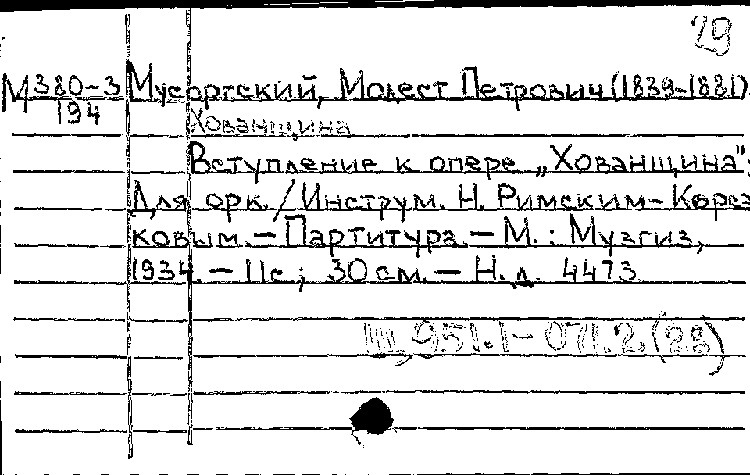 29
М 380-3 Мусоргский, Модест Петрович (1839-1881)
194
Хованщина
Вступление к опере „Хованщина":
Для орк. / Инструм. Н. Римским-Корса
ковым. – Партитура. – М. : Музгиз,
1934. – 11с.; 30 см. – Н.д. 4473
Щ 951.1-071.2(28)